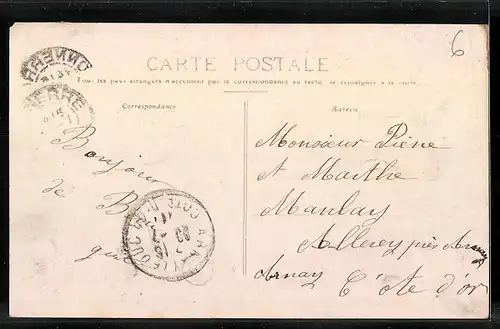 CARTE POSTALE
6
Tous les pays étrangers n'acceptent pas la correspondance au recto, se renseigner à la poste
Correspondance
Adresse
Bonjour
de B
Monsieur Pière
et Marthe
Manlay
Allerey près Arnay
Arnay Côte d'or
CÔTE D'OR